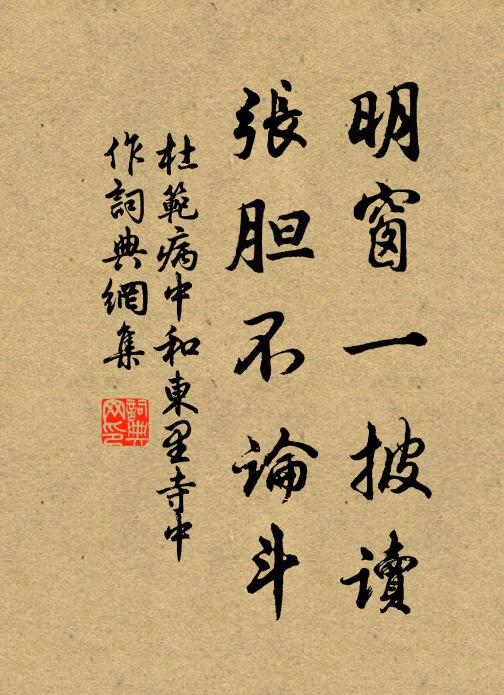 明窗一披讀
張胆不論斗
杜範病中和東里寺中
作詞典網集
詞典网印